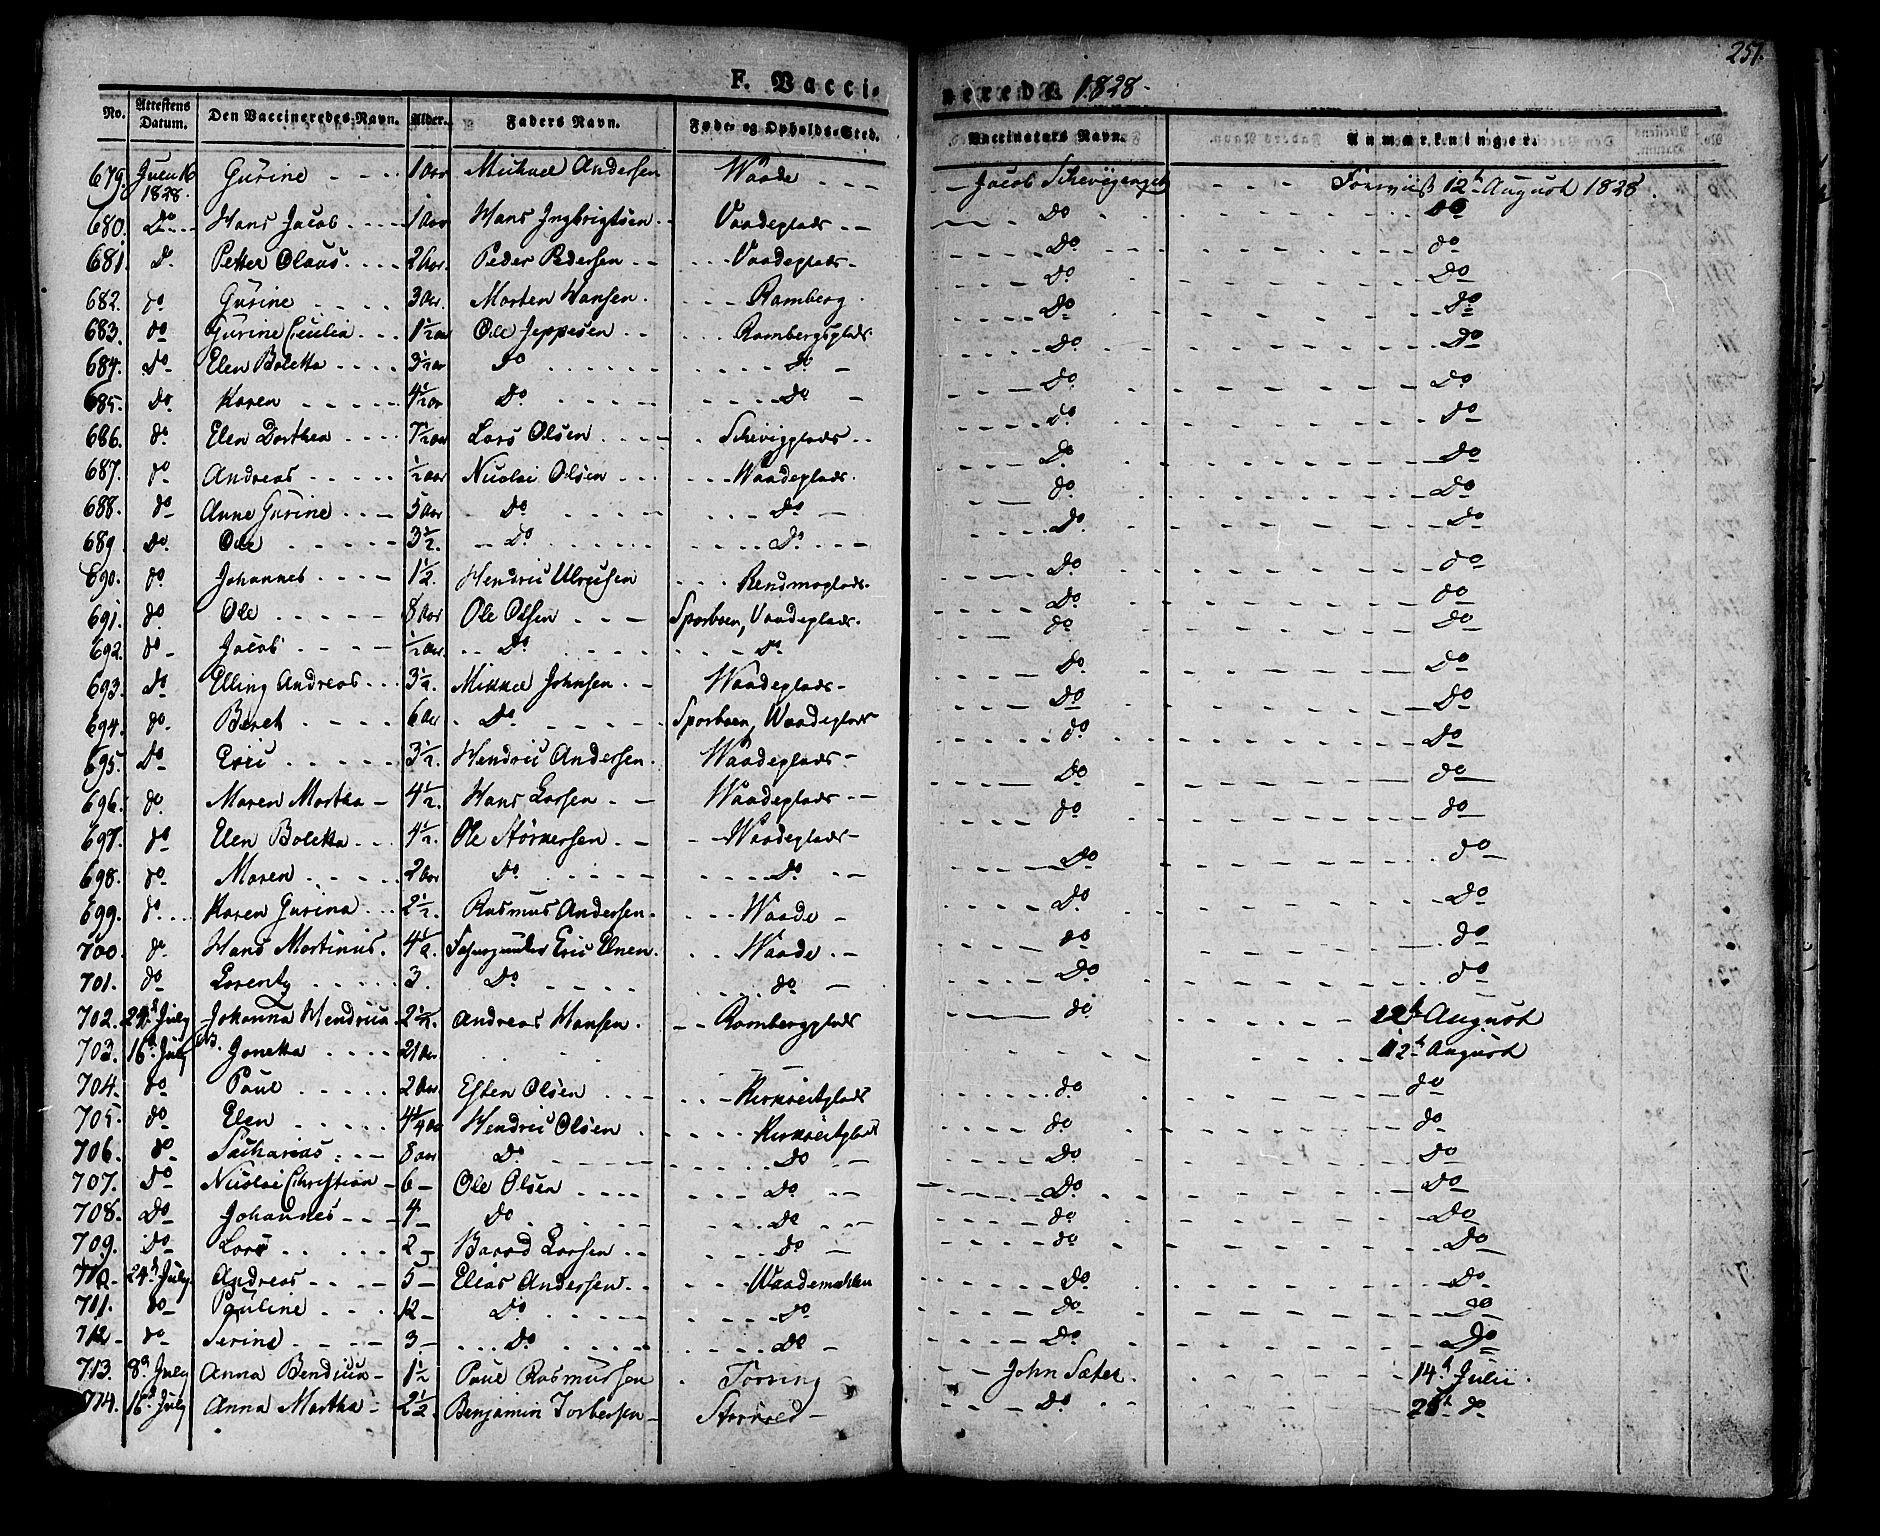 251.
F. Vaccinerede. 1828.
No. Attestens Datum. Den Vaccineredes Navn. Alder. Faders Navn. Føde- og Opholds-Sted. Vaccinateurs Navn. Anmærkninger.
679. 1828. Gurine 1 Aar Michael Andersen Waade Jacob 12te August 1828.
680. Do Hans Jacob 1 Aar Hans Ingbrigtsen Vaadeplads Do Do
681. Do Petter Olaus 2 Aar. Peder Pedersen Vaadeplads Do do
682. do Gurine 3 Aar. Morten Hansen. Ramberg. Do Do
683. do Gurine Cecilia 1½ aar Ole Jeppesen Rambergsplads Do Do
684. Do Elen Boletta 3½ aar Do Do Do Do
685. Do Karen 4½ aar Do Do Do Do
686. do Elen Dorthea 7½ aar Lars Olsen Schevigplads Do Do
687. do Andreas ½ aar Nicolai Olsen Waadeplads. Do Do
688. do Anne Gurine 5 Aar Do Do do Do
689. Do Ole 3½. Do Do Do Do
690. do Johannes 1½. Hendric Ulricsen Rendmoplads. Do do
691. do Ole 8 Aar Ole Olsen Sparboen, Vaadeplads. Do do
692. do Jacob ½ aar. Do Do do Do
693. Do Elling Andreas 3½. Mikkel Johnsen Waadeplads Do Do
694. do Beret 6 Aar Do Sparboen, Waadeplads Do Do
695. Do Eric 3½. Hendric Andersen. Waadeplads do Do
696. do Maren Martha 4½. Hans Larsen Waadeplads Do do
697. do Elen Boletta 4½. Ole Størkersen Waadeplads do do
698. do Maren 2 Aar Do Do Do do
699. do Karen Gurina 2½. Rasmus Andersen. Waade Do Do
700. do Hans Martinus. 4½. Eric Waade do do
701. do Lorentz 3. Do do Do do
702. 24de July Johanna Hendrica 2½. Andreas Hansen. Rambergplads do 12te August
703. 16de July Jonetta 12te August
704. do Paul 2 Aar Esten Olsen do do
705. do Elen Hendric Olsen do do
706. do Sacharias 8 aar Do Do Do Do
707. Do Nicolai Christian 6 Ole Olsen Do Do Do
708. Do Johannes 4 Do Do do Do
709. Do Lars 2 Baard Larsen do do Do
710. 24de July Andreas 5 Elias Andersen Waademahlen Do Do
711. do Pauline 12 Do Do Do Do
712 do Serine 3 Do Do Do Do
713. 8de July Anna Bendicta 1½ Paul Rasmussen Torring John Sæter 14de Julii
714. 16de July Anna Martha 2½. Benjamin Torbersen Do 28de do